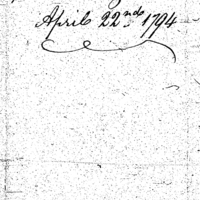 April 22nd 1794